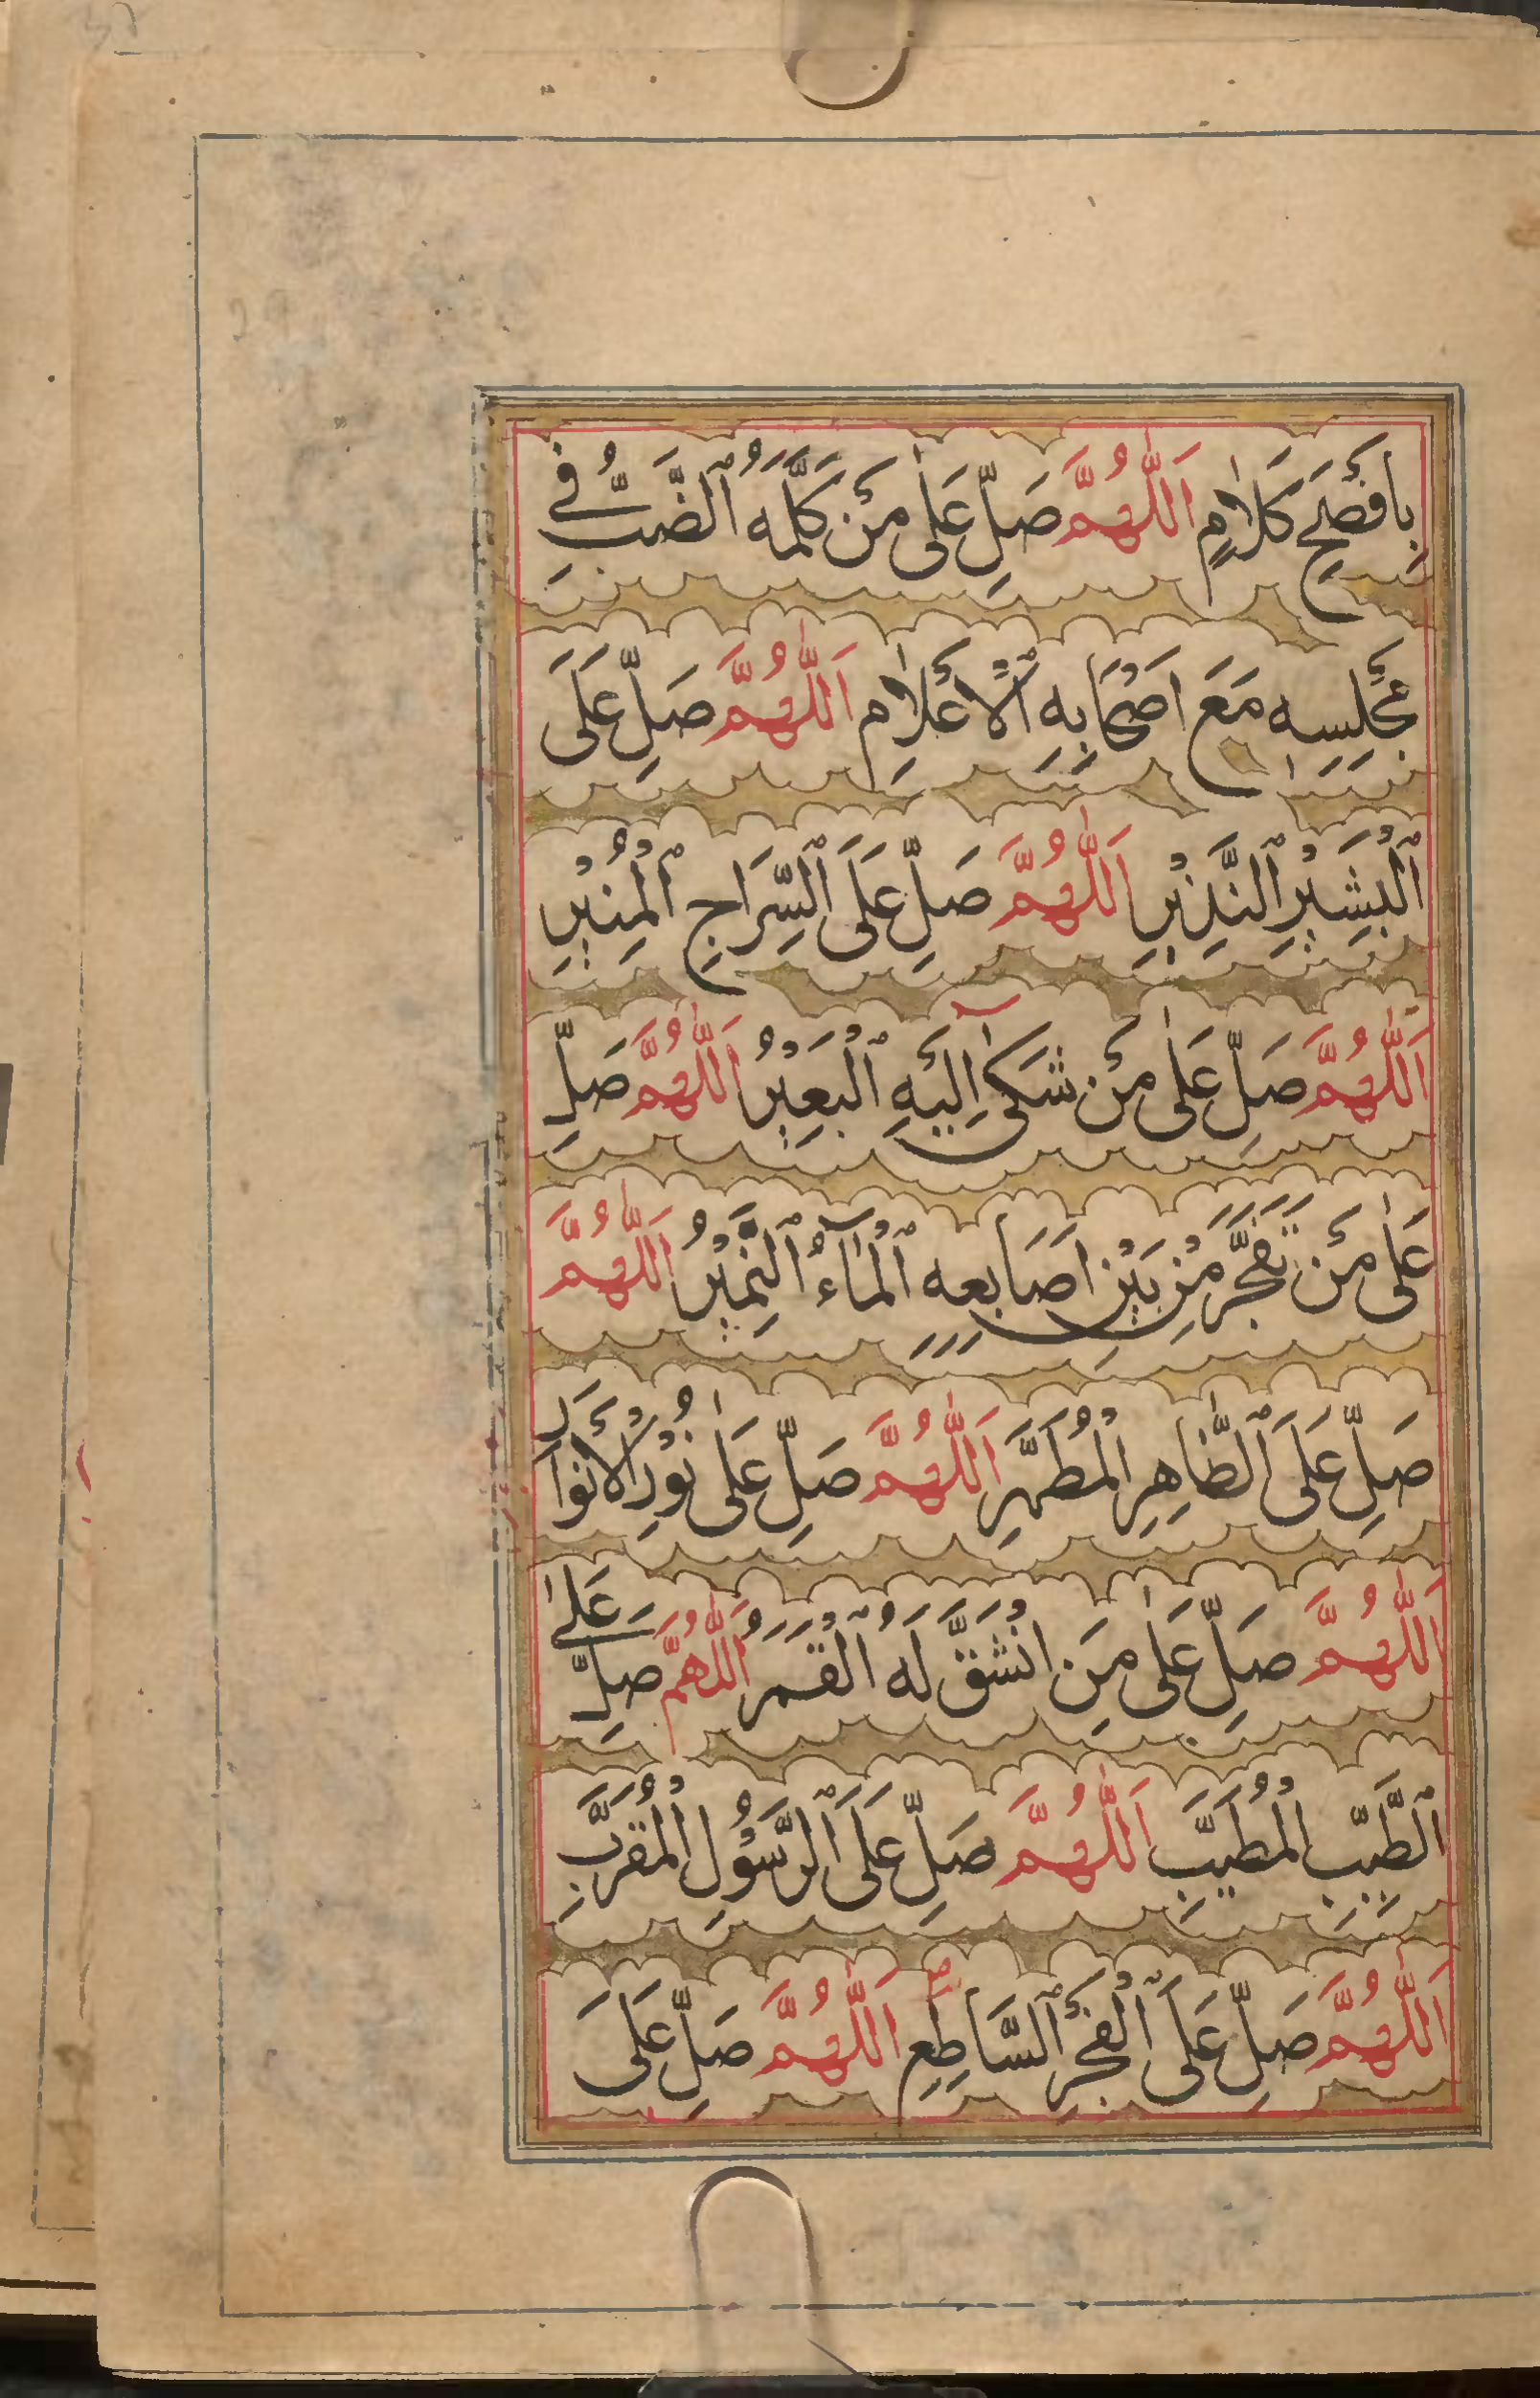 بِاَفْصَحِ كَلَامٍ اَللّٰهُمَّ صَلِّ عَلٰى مَنْ كَلَّمَهُ ٱلضَّبُّ فِي
مَجْلِسِهٖ مَعَ اَصْحَابِهِ ٱلْاَعْلَامِ اَللّٰهُمَّ صَلِّ عَلَى
ٱلْبَشِيْرِ ٱلنَّذِيْرِ اَللّٰهُمَّ صَلِّ عَلَى ٱلسِّرَاجِ ٱلْمُنِيْرِ
اَللّٰهُمَّ صَلِّ عَلٰى مَنْ شَكٰى اِلَيْهِ ٱلْبَعِيْرُ اَللّٰهُمَّ صَلِّ
عَلٰى مَنْ تَفَجَّرَ مِنْ بَيْنِ اَصَابِعِهِ ٱلْمَآءُ ٱلنَّمِيْرُ اَللّٰهُمَّ
صَلِّ عَلَى ٱلطَّاهِرِ الْمُطَهَّرِ اَللّٰهُمَّ صَلِّ عَلٰى نُوْرِ الْاَنْوَارِ
اَللّٰهُمَّ صَلِّ عَلٰى مَنِ انْشَقَّ لَهُ ٱلْقَمَرُ اَللّٰهُمَّ صَلِّ عَلٰى
ٱلطَّيِّبِ الْمُطَيَّبِ اَللّٰهُمَّ صَلِّ عَلَى ٱلرَّسُوْلِ الْمُقَرَّبِ
اَللّٰهُمَّ صَلِّ عَلَى ٱلْفَجْرِ ٱلسَّاطِعِ اَللّٰهُمَّ صَلِّ عَلَى